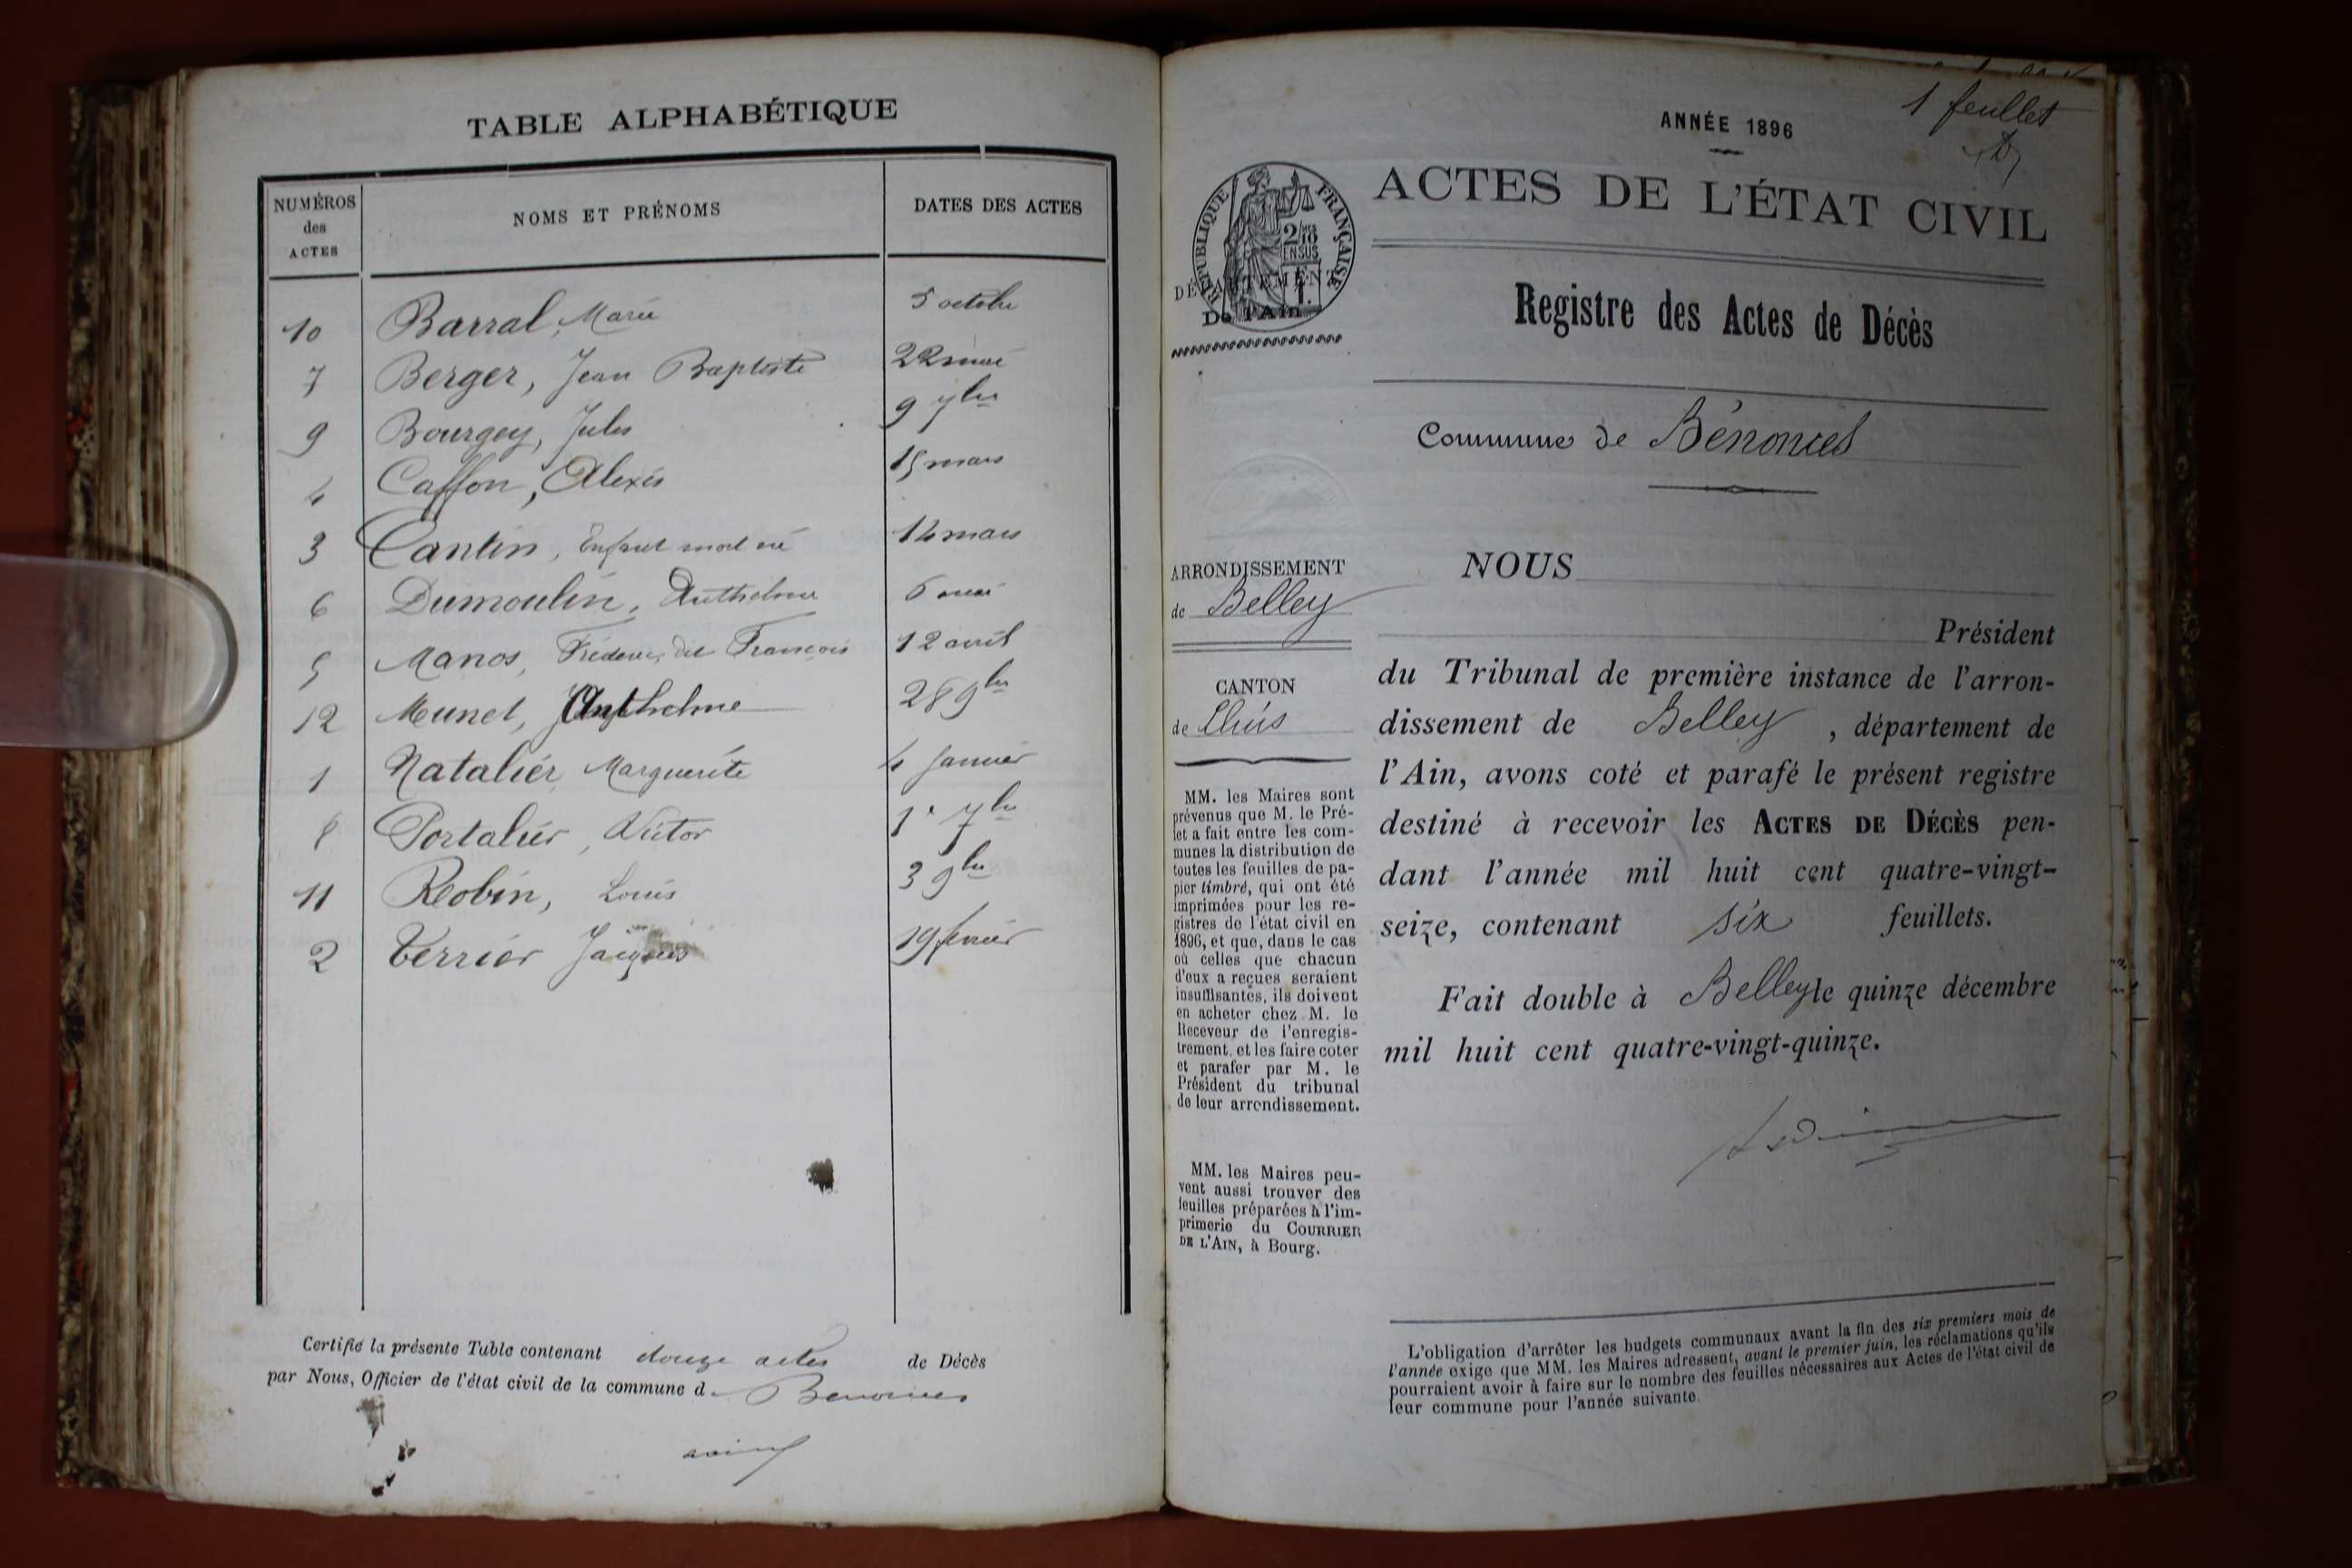 TABLE ALPHABÉTIQUE
NUMÉROS
des
ACTES
NOMS ET PRÉNOMS
DATES DES ACTES
10 Barral, Marie 5 octobre
7 Berger, Jean Baptiste 22 mai
9 Bourgey, Jules 9 7bre
4 Caffon, Alexis 15 mars
3 Cantin, Enfant mort né 14 mars
6 Dumoulin, Anthelme 6 mai
5 Manos, Fréderic dit François 12 avril
12 Munet, Anthelme 28 9bre
1 Natalier Marguerite 4 Janvier
8 Portalier, Victor 1er 7bre
11 Robin, Louis 3 9bre
2 Verrier Jacques 19 février
Certifié la présente Table contenant douze actes de Décès
par Nous, Officier de l'état civil de la commune d Benonces
1 feuillet
ANNÉE 1896
RÉPUBLIQUE FRANÇAISE
2/10
EN SUS
DÉPARTEMENT
De l'Ain
ACTES DE L'ÉTAT CIVIL
Registre des Actes de Décès
Commune de Bénonces
ARRONDISSEMENT
de Belley
CANTON
de Lhuis
MM. les Maires sont
prévenus que M. le Pré-
fet a fait entre les com-
munes la distribution de
toutes les feuilles de pa-
pier timbré, qui ont été
imprimées pour les re-
gistres de l'état civil en
1896, et que, dans le cas
où celles que chacun
d'eux a reçues seraient
insuffisantes, ils doivent
en acheter chez M. le
Receveur de l'enregis-
trement, et les faire coter
et parafer par M. le
Président du tribunal
de leur arrondissement.
MM. les Maires peu-
vent aussi trouver des
feuilles préparées à l'im-
primerie du COURRIER
DE L'AIN, à Bourg.
NOUS
Président
du Tribunal de première instance de l'arron-
dissement de Belley, département de
l'Ain, avons coté et parafé le présent registre
destiné à recevoir les ACTES DE DÉCÈS pen-
dant l'année mil huit cent quatre-vingt-
seize, contenant six feuillets.
Fait double à Belley le quinze décembre
mil huit cent quatre-vingt-quinze.
L'obligation d'arrêter les budgets communaux avant la fin des six premiers mois de
l'année exige que MM. les Maires adressent, avant le premier juin, les réclamations qu'ils
pourraient avoir à faire sur le nombre des feuilles nécessaires aux Actes de l'état civil de
leur commune pour l'année suivante.